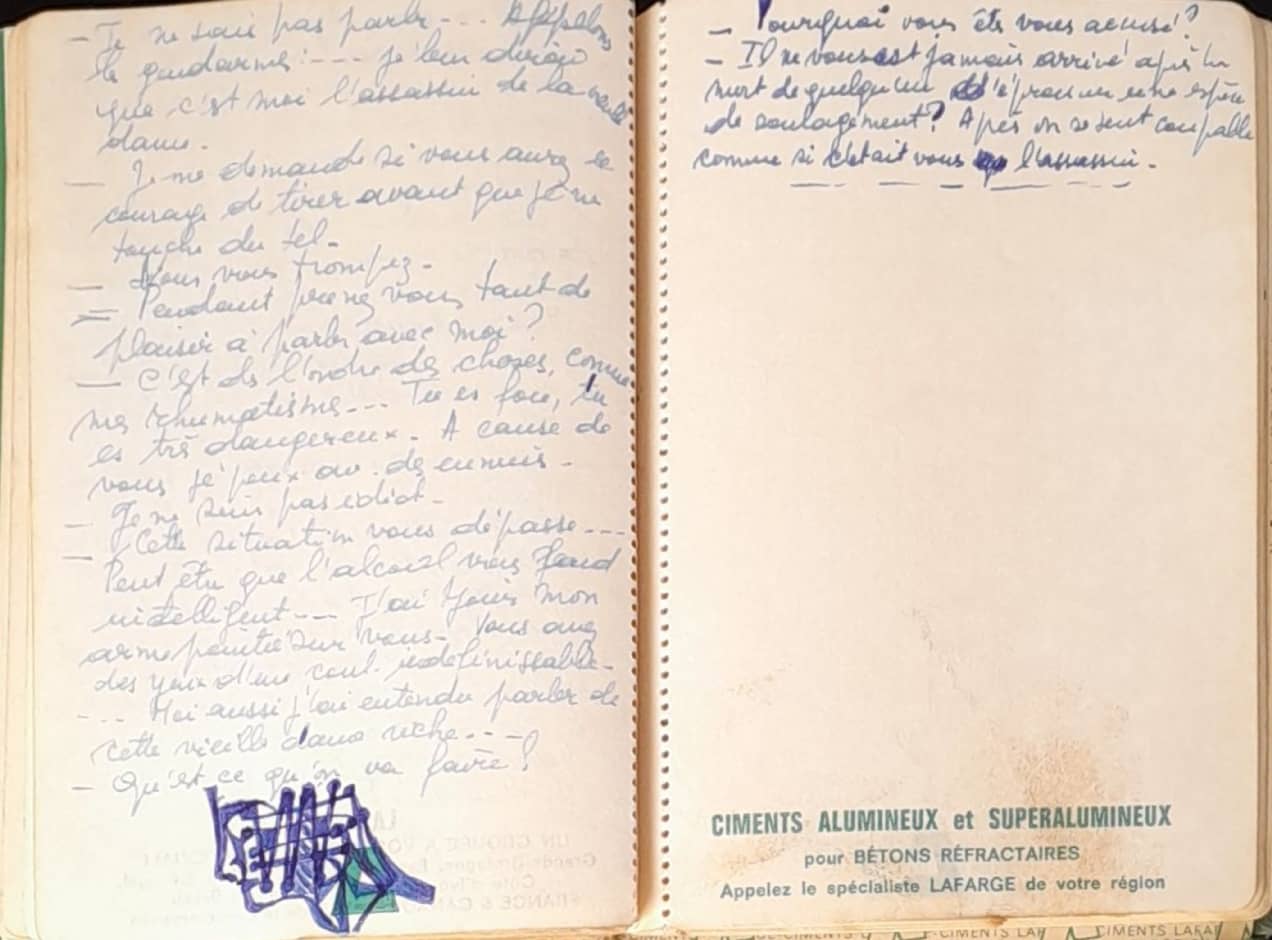 - Je ne sais pas parler --- Appelons
le gendarme! --- je leur dirai
que c'est moi l'assassin de la vieille
dame.
— Je me demande si vous aurez le
courage de tirer avant que je ne
touche du tel.
— Vous vous trompez.
= Pendant prenez vous tant de
plaisir à parler avec moi?
— C'est de l'ordre des choses, comme
mes rhumatisme --- Tu es fou, tu
es très dangereux. A cause de
vous je peux av. des ennuis.
— Je ne suis pas idiot.
— Cette situation vous dépasse ---
Peut être que l'alcool vous
intelligent --- J'ai mon
arme pointée sur vous. Vous avez
des yeux d'une coul. indéfinissable.
--- Moi aussi j'ai entendu parler de
cette vieille dame riche ---
- Qu'est ce qu'on va faire?
— Pourquoi vous êts vous accusé?
- Il ne vous est jamais arrivé après la
mort de quelqu'un d'éprouver une espèce
de soulagement? Après on se sent coupable
comme si c'était vous l'assassin.
CIMENTS ALUMINEUX et SUPERALUMINEUX
pour BÉTONS RÉFRACTAIRES
Appelez le spécialiste LAFARGE de votre région